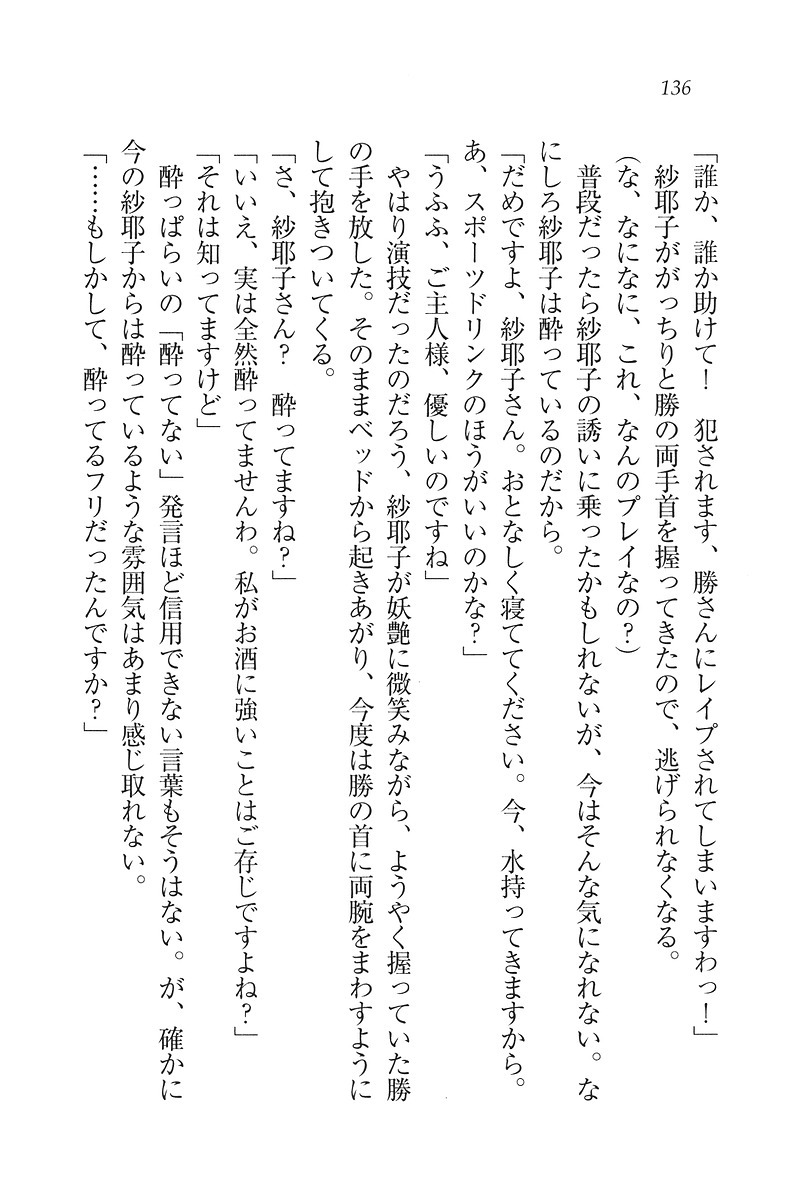 136
「誰か、誰か助けて！　犯されます、勝さんにレイプされてしまいますわっ！」
　紗耶子ががっちりと勝の両手首を握ってきたので、逃げられなくなる。
（な、なになに、これ、なんのプレイなの？）
　普段だったら紗耶子の誘いに乗ったかもしれないが、今はそんな気になれない。な
にしろ紗耶子は酔っているのだから。
「だめですよ、紗耶子さん。おとなしく寝ててください。今、水持ってきますから。
あ、スポーツドリンクのほうがいいのかな？」
「うふふ、ご主人様、優しいのですね」
　やはり演技だったのだろう、紗耶子が妖艶に微笑みながら、ようやく握っていた勝
の手を放した。そのままベッドから起きあがり、今度は勝の首に両腕をまわすように
して抱きついてくる。
「さ、紗耶子さん？　酔ってますね？」
「いいえ、実は全然酔ってませんわ。私がお酒に強いことはご存じですよね？」
「それは知ってますけど」
　酔っぱらいの「酔ってない」発言ほど信用できない言葉もそうはない。が、確かに
今の紗耶子からは酔っているような雰囲気はあまり感じ取れない。
「……もしかして、酔ってるフリだったんですか？」